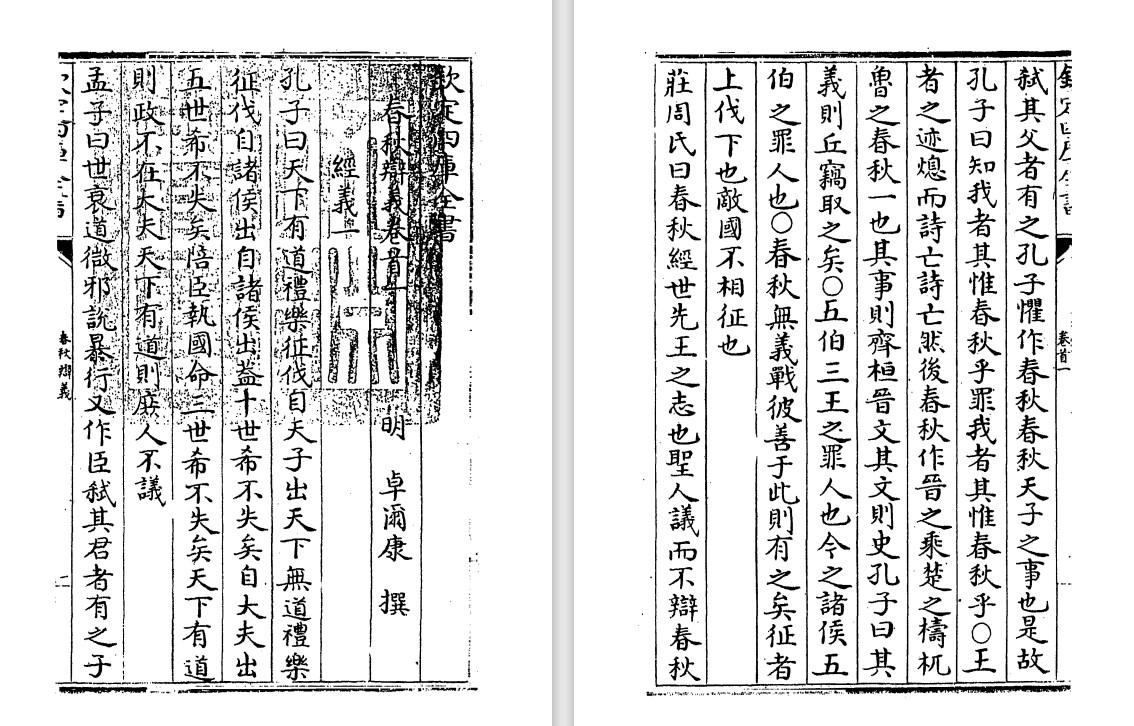 欽定四庫全書
春秋辯義卷首一　明　卓爾康　撰
經義一
孔子曰天下有道禮樂征伐自天子出天下無道禮樂
征伐自諸侯出自諸侯出蓋十世希不失矣自大夫出
五世希不失矣陪臣執國命三世希不失矣天下有道
則政不在大夫天下有道則庶人不議
孟子曰世衰道微邪說暴行又作臣弑其君者有之子
春秋辯義
卷首一
弑其父者有之孔子懼作春秋春秋天子之事也是故
孔子曰知我者其惟春秋乎罪我者其惟春秋乎○王
者之迹熄而詩亡詩亡然後春秋作晉之乘楚之檮杌
魯之春秋一也其事則齊桓晉文其文則史孔子曰其
義則丘竊取之矣○五伯三王之罪人也今之諸侯五
伯之罪人也○春秋無義戰彼善于此則有之矣征者
上伐下也敵國不相征也
莊周氏曰春秋經世先王之志也聖人議而不辯春秋